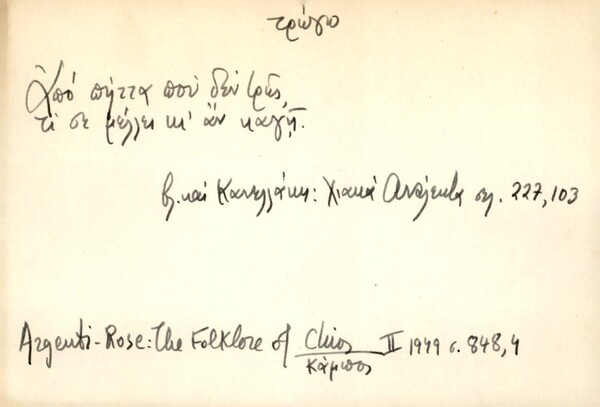 τρώγω
Ἀπό πήττα που δεν τρῶς,
τί σε μέλλει κι' ἄν καγῇ.
βλ. και Κανελλάκη: Χιακά Ανάλεκτα σελ. 227, 103
Argenti-Rose: The Folklore of Chios II 1949 σ. 848, 4
Κάμπος